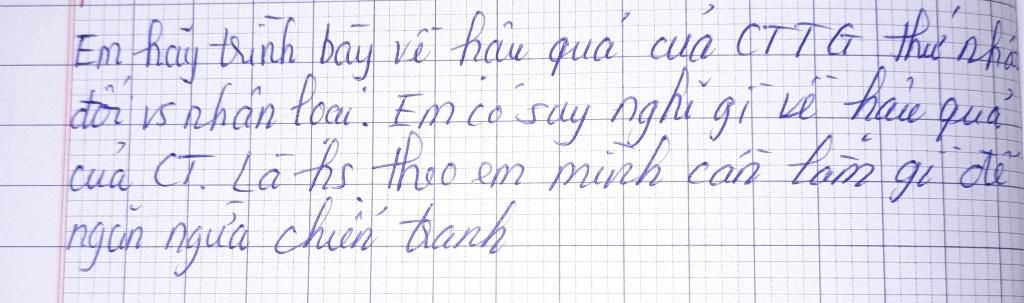 Em hãy trình bày về hậu quả của CTTG thứ nhấ
đối vs nhân loại. Em có suy nghĩ gì về hậu quả
của CT. Là hs theo em mình cần làm gì để
ngăn ngừa chiến tranh